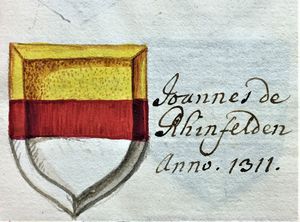 Joannes de
Rhinfelden
Anno. 1311.